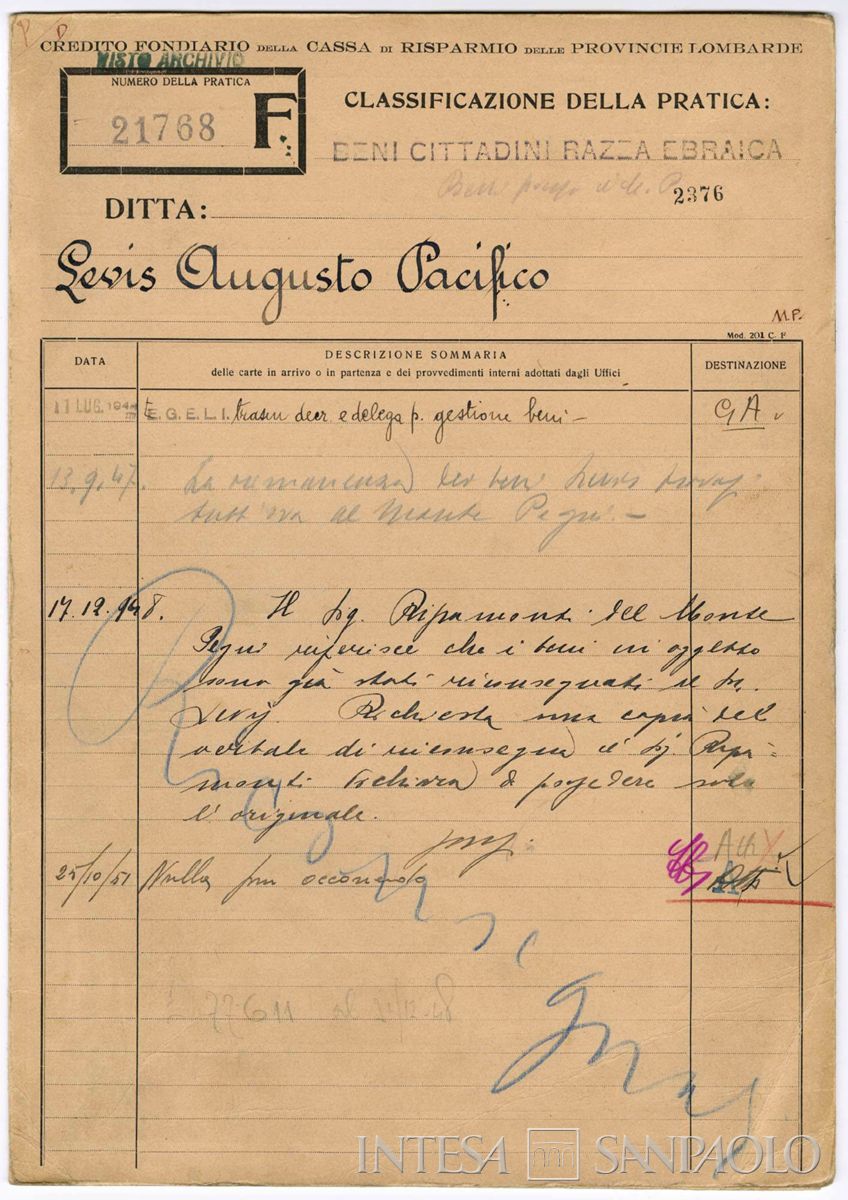 CREDITO FONDIARIO DELLA CASSA DI RISPARMIO DELLE PROVINCIE LOMBARDE
VISTO ARCHIVIO
NUMERO DELLA PRATICA
21768 F.
CLASSIFICAZIONE DELLA PRATICA:
BENI CITTADINI RAZZA EBRAICA
2376
DITTA:
Levis Augusto Pacifico
M.P.
Mod. 201 C. F
DATA
DESCRIZIONE SOMMARIA
delle carte in arrivo o in partenza e dei provvedimenti interni adottati dagli Uffici
DESTINAZIONE
11 LUG. 1944 E.G.E.L.I. trasm decr e delega p. gestione beni — GA
13.9.47. La rimanenza dei beni Levis
tutt'ora al Monte Pegni. —
17.12.948. Il Sig. Ripamonti del Monte
Pegni riferisce che i beni in oggetto
sono già stati riconsegnati al Sig.
Levi. Richiesta una copia del
verbale di riconsegna il Sig. Ripa-
monti dichiara di possedere solo
l'originale.
25/10/51 Nulla più occorrendo Atti
INTESA SANPAOLO